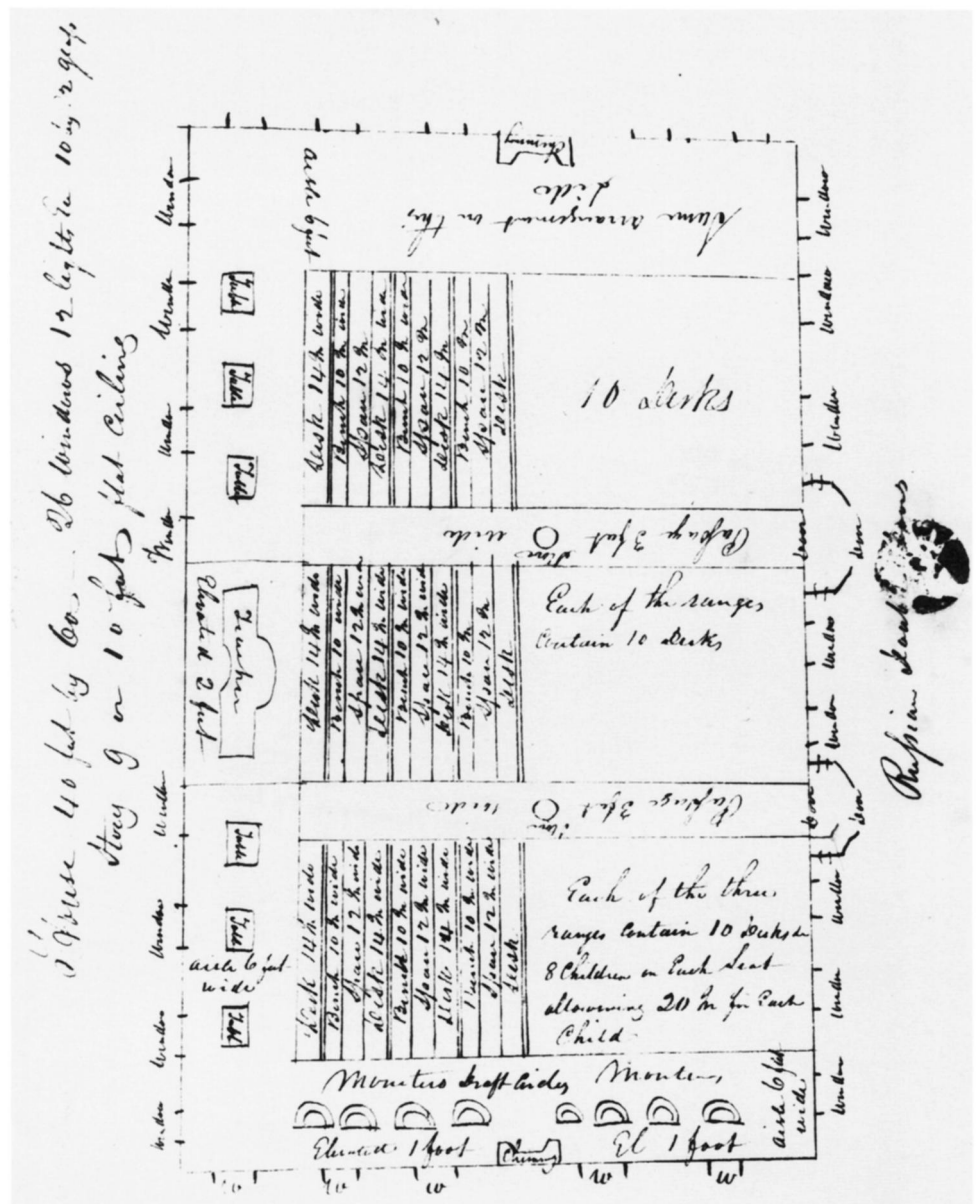 House 40 feet by 60 - 26 windows 12 lights to 10 by 12 glass
Story 9 or 10 feet flat Ceiling
Window
Window
Window
Window
Window
Window
Window
Window
Window
Window
Chimney
Same arrangement on this
side
aisle 6 feet
Table
Table
Table
Desk 14 In wide
Bench 10 In wide
Space 12 In
Desk 14 In wide
Bench 10 In wide
Space 12 In
Desk 14 In
Bench 10 In
Space 12 In
Desk
10 Desks
Passage 3 feet
wide
Stove
Teacher
Elevated 2 feet
Desk 14 In wide
Bench 10 wide
Space 12 In wide
Desk 14 In wide
Bench 10 In wide
Space 12 In wide
Desk 14 In wide
Bench 10 In
Space 12 In
Desk
Each of the ranges
Contain 10 Desks
Passage 3 feet
wide
Stove
Table
Table
Table
aisle 6 feet
wide
Desk 14 In wide
Bench 10 In wide
Space 12 In wide
Desk 14 In wide
Bench 10 In wide
Space 12 In wide
Desk 14 In wide
Bench 10 In wide
Space 12 In wide
Desk
Each of the three
ranges Contain 10 Desks &
8 Children on Each Seat
allowing 20 In for Each
Child
Monitors Draft Circles Monitors
Elevated 1 foot
Chimney
El 1 foot
aisle 6 feet
wide
Window
Window
Window
Window
Window
Window
Window
Window
door
door
door
door
W
W
W
W